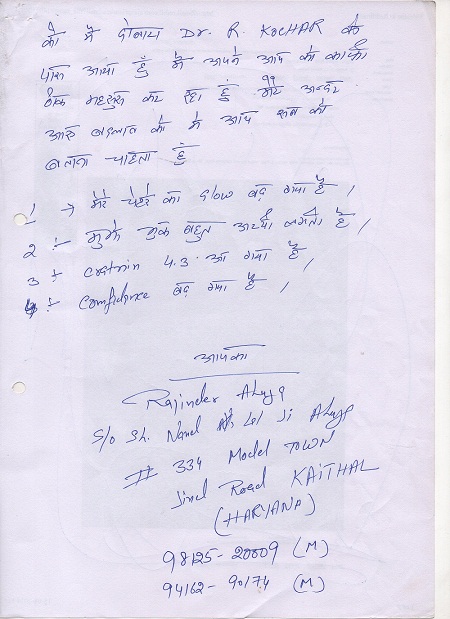 को मैं दोबारा Dr. R. KOCHAR के
पास आया हूँ मैं अपने आप को काफी
ठीक महसूस कर रहा हूं मेरे अन्दर
आऐ बदलाव को मैं आप सब को
बताना चाहता हूं
1 → मेरे चेहरे का glow बढ़ गया है ,
2 :- मुझे भुख बहुत अच्छी लगती है ,
3 :- creatnin 4.3. आ गया है ,
4 :- Comfidance बढ़ गया है ,
आपका
Rajinder Ahuja
S/o Sh. Nand Lal Ji Ahuja
# 334 Model TOWN
Jind Road KAITHAL
(HARYANA)
98125-20009 (M)
94162-90174 (M)